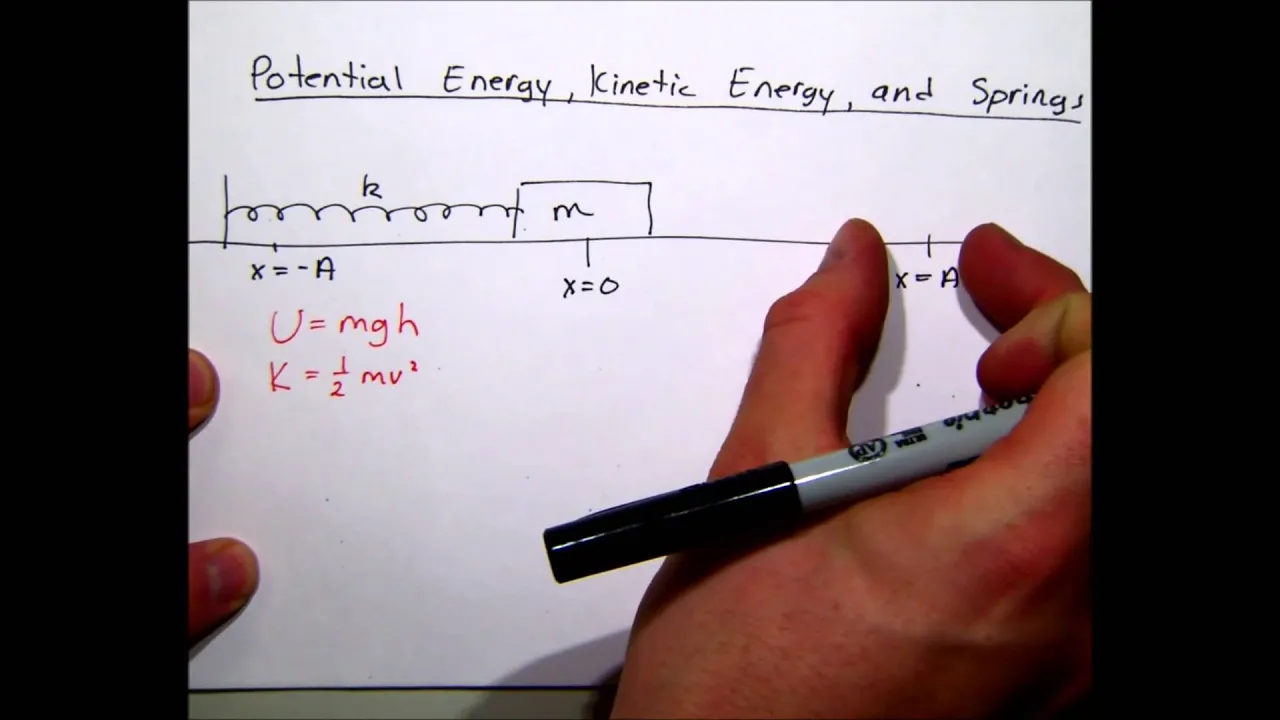 Potential Energy, Kinetic Energy, and Springs
k
m
x = -A
x = 0
x = A
U = mgh
K = 1/2 mv²
ULTRA